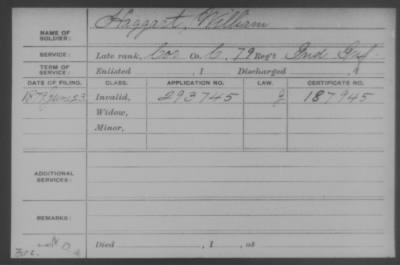 NAME OF SOLDIER: Haggart, William
SERVICE: Late rank, Cor Co. C. 79 Reg't Ind Inf
TERM OF SERVICE: Enlisted , 1 Discharged , 1
DATE OF FILING. CLASS. APPLICATION NO. LAW. CERTIFICATE NO.
1879 June 23 Invalid, 293745 187945
Widow,
Minor,
ADDITIONAL SERVICES:
REMARKS:
Died , 1 , at